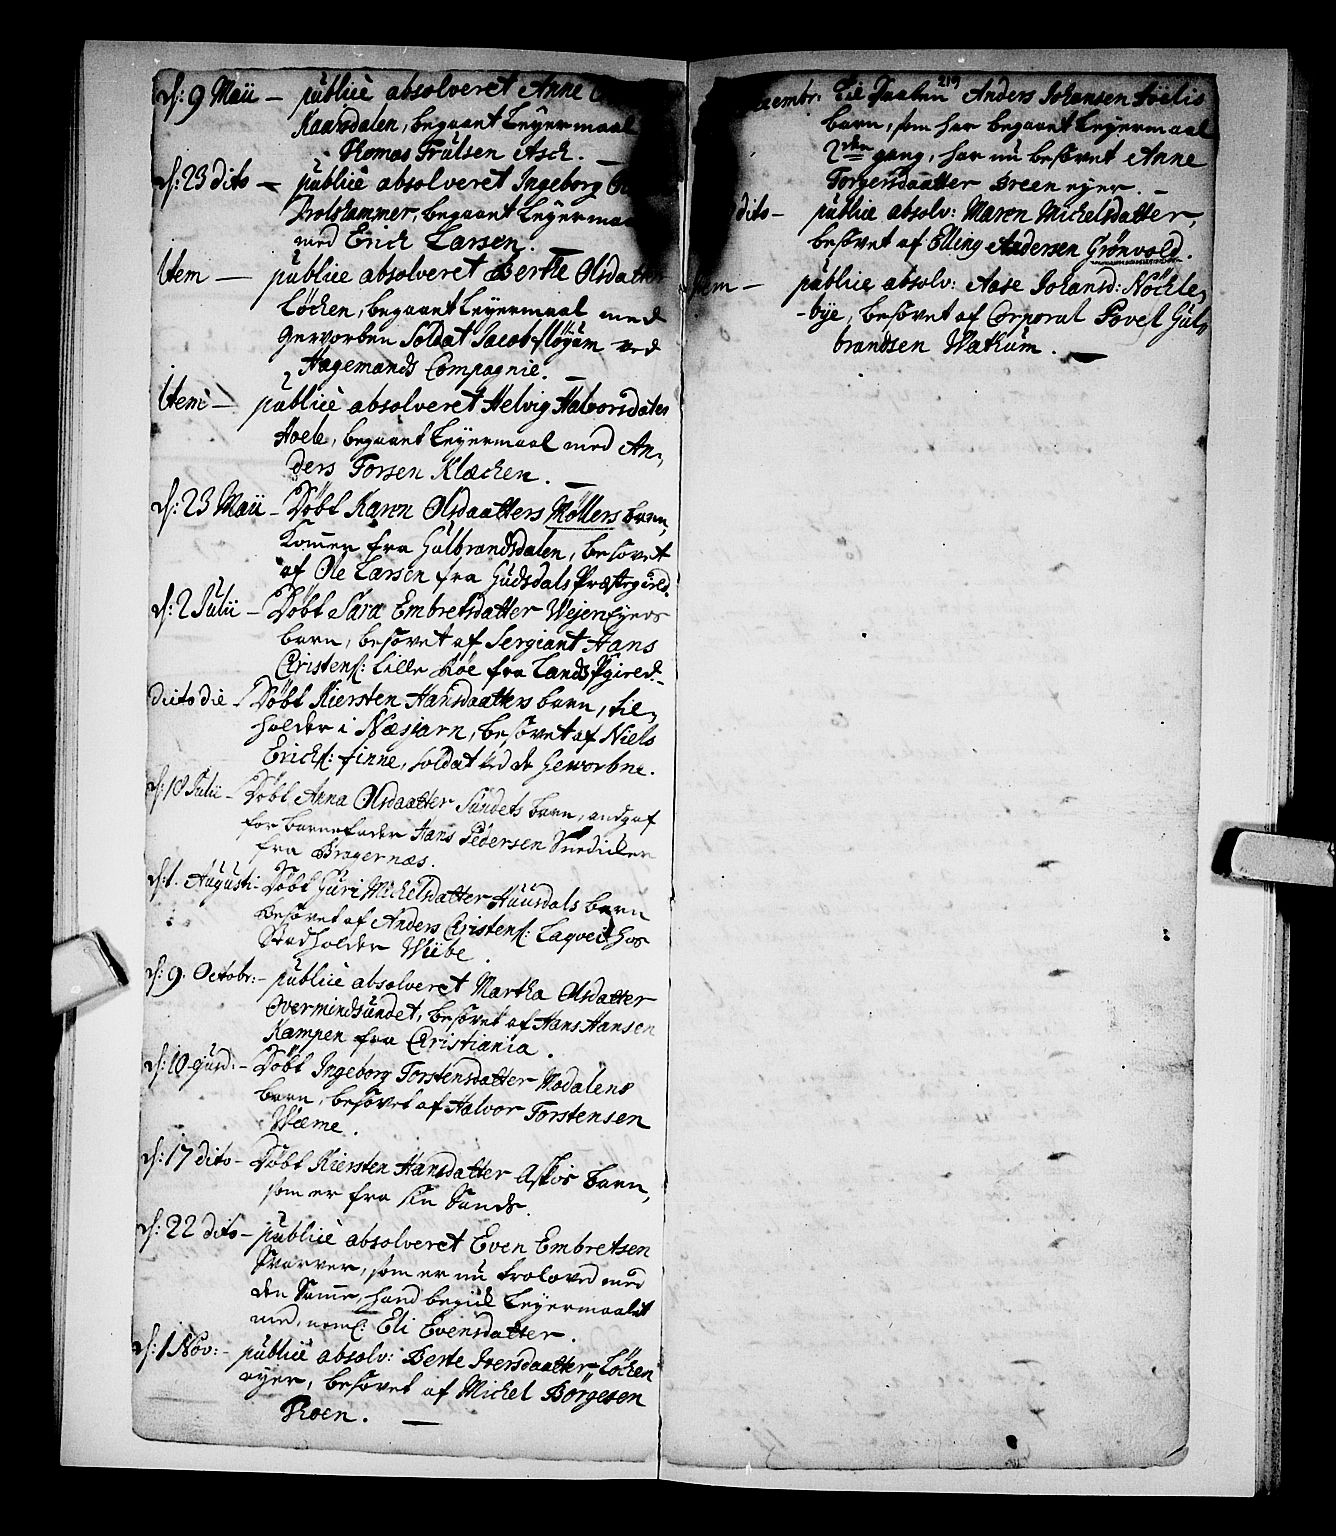 d: 9 Maii — publicè absolveret Anne
Kaarsdalen, begaaet Leyermaal
Thomas Trulsen Asch. —
d: 23 dito — publicè absolveret Ingeborg
Trolshammer, begaaet Leyermaal
med Erich Larsen. —
Item — publicè absolveret Berthe Olsdatter
Løchen, begaaet Leyermaal med
gevorben Soldat Jacob fløyum ved
Hagemands Compagnie. —
Item — publicè absolveret Helvig Halvorsdater
Hoele, begaaet Leyermaal med An,
ders Torsen Klæchen. —
d: 23 Maii — Døbt Karen Olsdaatters Møllers barn,
Kommen fra Gulbrandsdalen, besovet
af Ole Larsen fra Gudsdals Præstegield.
d: 2 Julii — Døbt Sara Embretsdatter Wejeneyers
barn, besovet af Sergiant Hans
Christens: Lille Røe fra Lands Pgield.
dicto die — Døbt Kiersten Hansdaatters barn, til,
holder i Næsjarn, besovet af Niels
Erichs: finne, soldat ved de Geworbne.
d: 18 Julii — Døbt Anna Olsdaatter Sundets barn, audgaf
for barnefader Hans Pedersen Snedicker
fra Bragernæs.
d: 1. Augusti — Døbt Guri Michelsdatter Huusdals barn
besovet af Anders Christens: Laqvei hos
Stadholder Wibe.
d: 9. Octobr: — publicè absolveret Martha Olsdatter
Overmindsundet, besovet af Hans Hansen
Kampen fra Christiania.
d: 10 ejusd: — Døbt Ingeborg Torstensdatter Modalens
barn, besovet af Halvor Torstensen
Wæme.
d: 17 dito — Døbt Kiersten Hansdatter Askøs barn,
som er fra sin Sands.
d: 22 dito — publicè absolveret Even Embretsen
Svarver, som er nu troloved med
den Samme, hand begik Leyermaalet
med, neml: Eli Evensdatter.
d: 1 Nov: — publicè absolv: Berte Iversdaatter Løchen
eyer, besovet af Michel Borgesen
Thoen. —
219
embr: til Daaben Anders Johansen Søelis
barn, som har begaaet Leyermaal
2den gang, har nu besovet Anne
Torgersdaatter Breen eyer. —
dito — publicè absolv: Maren Michelsdatter,
besovet af Elling Andersen Grønvold.
Item — publicè absolv: Aase Johansd: Nøchle,
bye, besovet af Corporal Povel Gul,
brandsen Wæchum. —